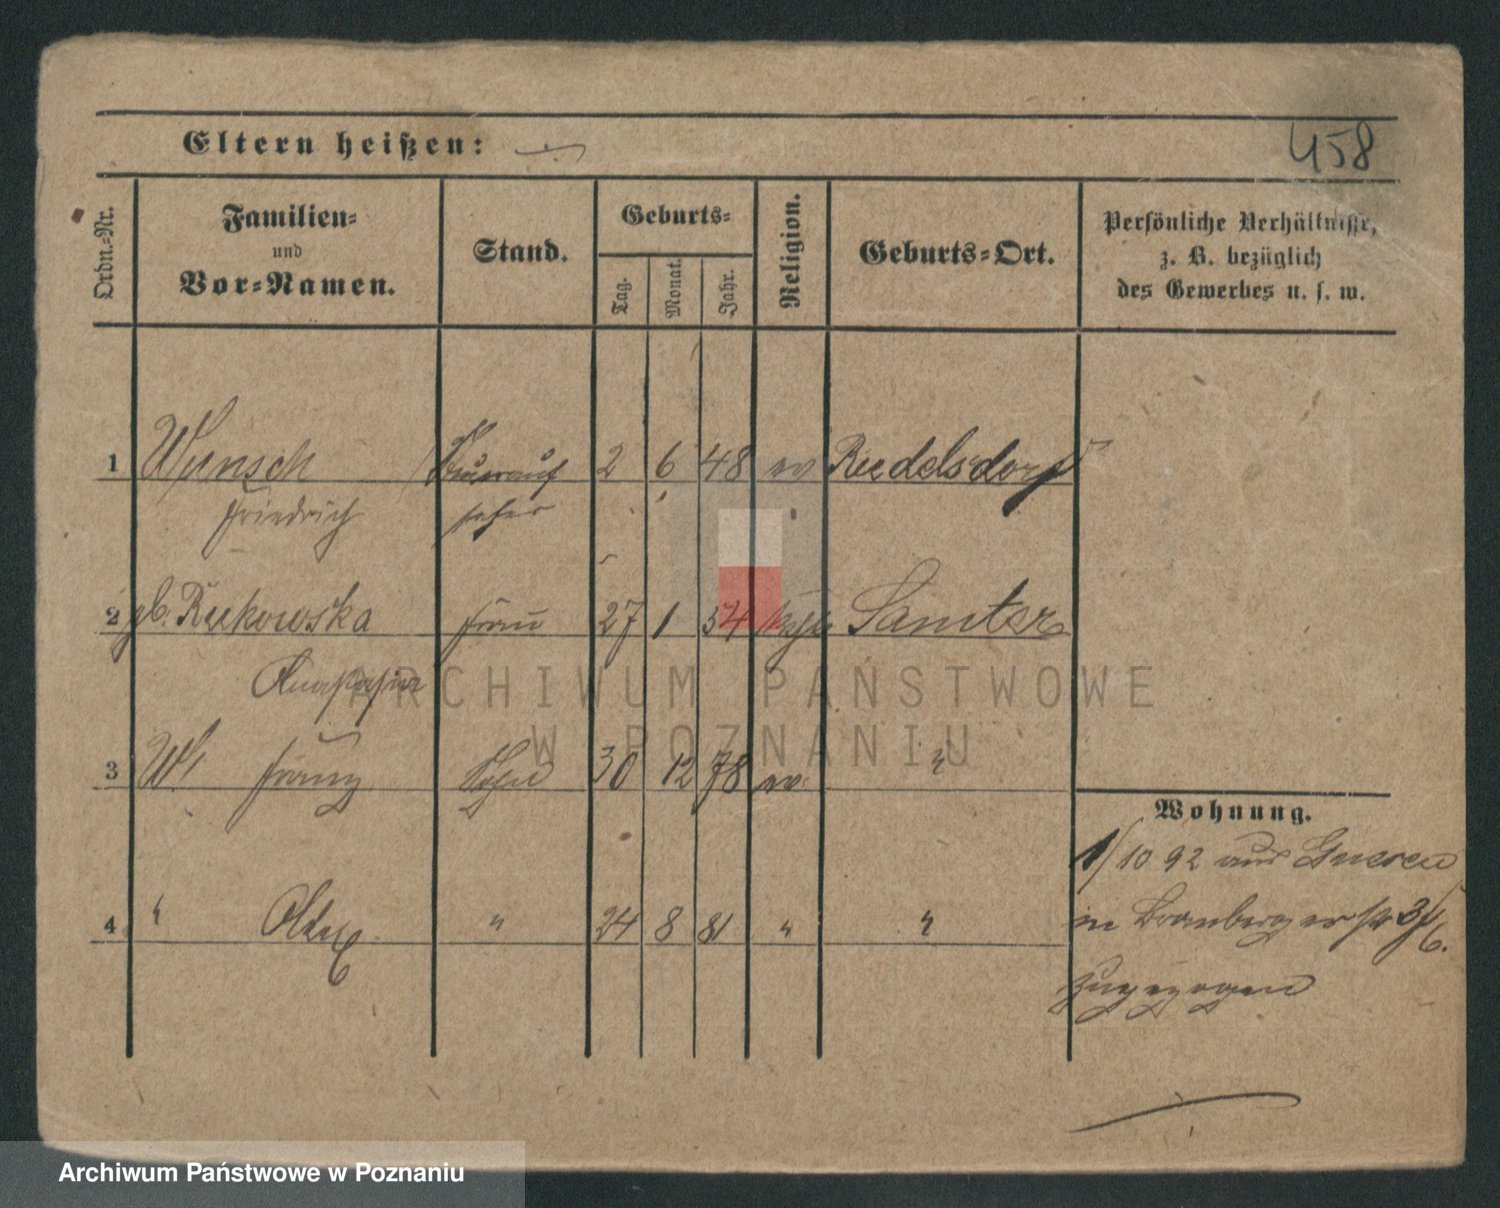 Eltern heißen: —
458
Ordn.-Nr.
Familien-
und
Vor-Namen.
Stand.
Geburts-
Tag.
Monat.
Jahr.
Religion.
Geburts-Ort.
Persönliche Verhältnisse,
z. B. bezüglich
des Gewerbes u. s. w.
1 Wunsch Steuerauf 2 6 48 ev Riedelsdorf
Friedrich seher
2 gb. Frau 27 1 54 kath Samter
Anastasia
3 W. Franz Sohn 30 12 78 ev. "
4 " " 24 8 81 " "
Wohnung.
1/10 92 aus Gnesen
in Brombergerstr 3/6.
zugezogen
ARCHIWUM PAŃSTWOWE
W POZNANIU
Archiwum Państwowe w Poznaniu